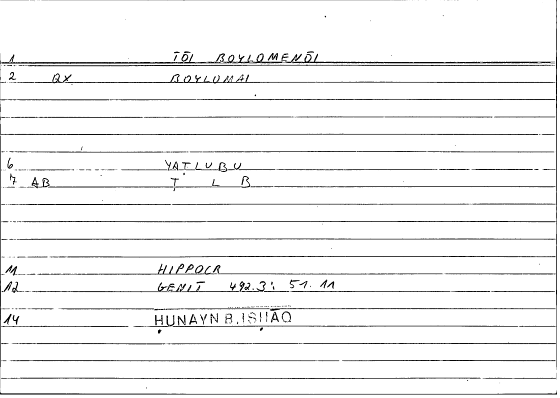 1 TŌI BOYLOMENŌI
2 QX BOYLOMAI
6 YAṬLUBU
7 AB Ṭ L B
11 HIPPOCR
12 GENIT 492.3; 51.11
14 ḤUNAYN B. ISḤĀQ